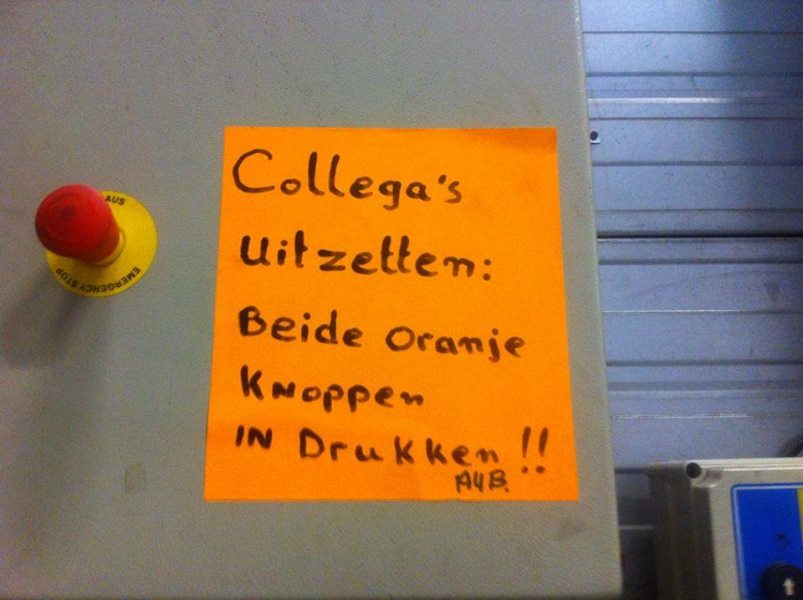 Collega's
Uitzetten:
Beide oranje
Knoppen
IN Drukken!!
AUB.
AUS
EMERGENCY STOP